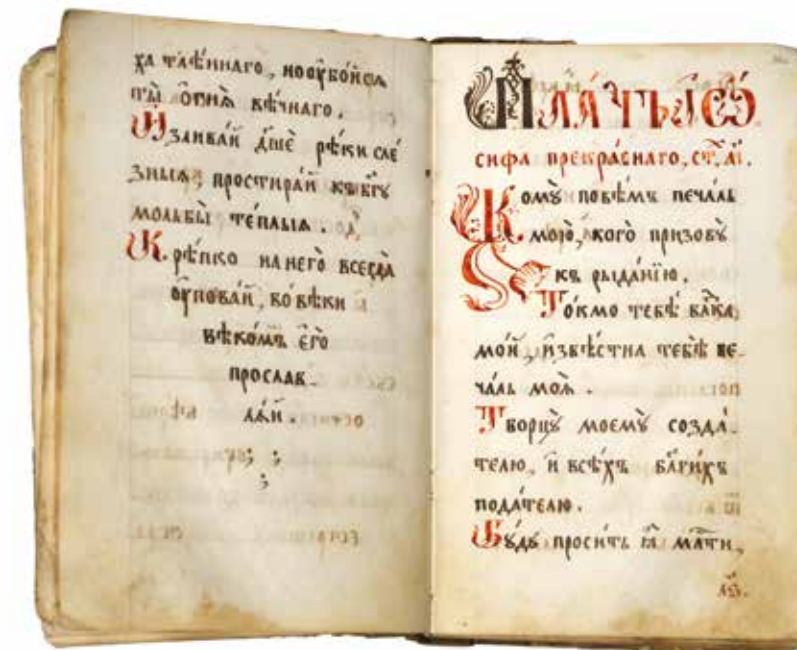 ха таѐннаго, но ѹбо́йсѧ
ты̀ ѻ҆гнѧ̀ вѣ́чнаго.
И҆зливай дш҃ѐ рѣ́ки сле́
зныѧ, простира́й къ бг҃ꙋ
мольбы̀ те́плыѧ.
Крѣ́пко на него̀ всегда̀
ѹ҆пова́й, во вѣ́ки
вѣко́мъ є҆го̀
прослав-
лѧ́й.
Пла́чь і҆ѡ́
сифа прекра́снаго, ст. л҃і.
Комꙋ̀ повѣ́мъ печа́ль
мою̀, кого̀ призовꙋ̀
къ рыда́нїю.
То́кмо тебѣ̀ вл҃ка
мо́й, и҆звѣ́стна тебѣ̀ пе-
ча́ль моѧ̀.
Творцꙋ̀ моемꙋ̀ созда́-
телю, и҆ всѣ́хъ бл҃ги́хъ
пода́телю.
Бꙋ́дꙋ проси́ть мл҃ти,